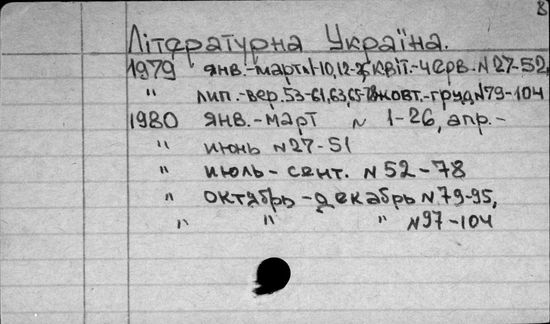 8
Літературна Україна.
1979 янв.-март №1-10, 12-26, квіт.-черв. №27-52,
" лип.-вер. 53-61, 63, 65-78 жовт.-груд №79-104
1980 янв.-март № 1-26, апр.-
" июнь №27-51
" июль-сент. №52-78
" октябрь-декабрь №79-95,
" " " №97-104